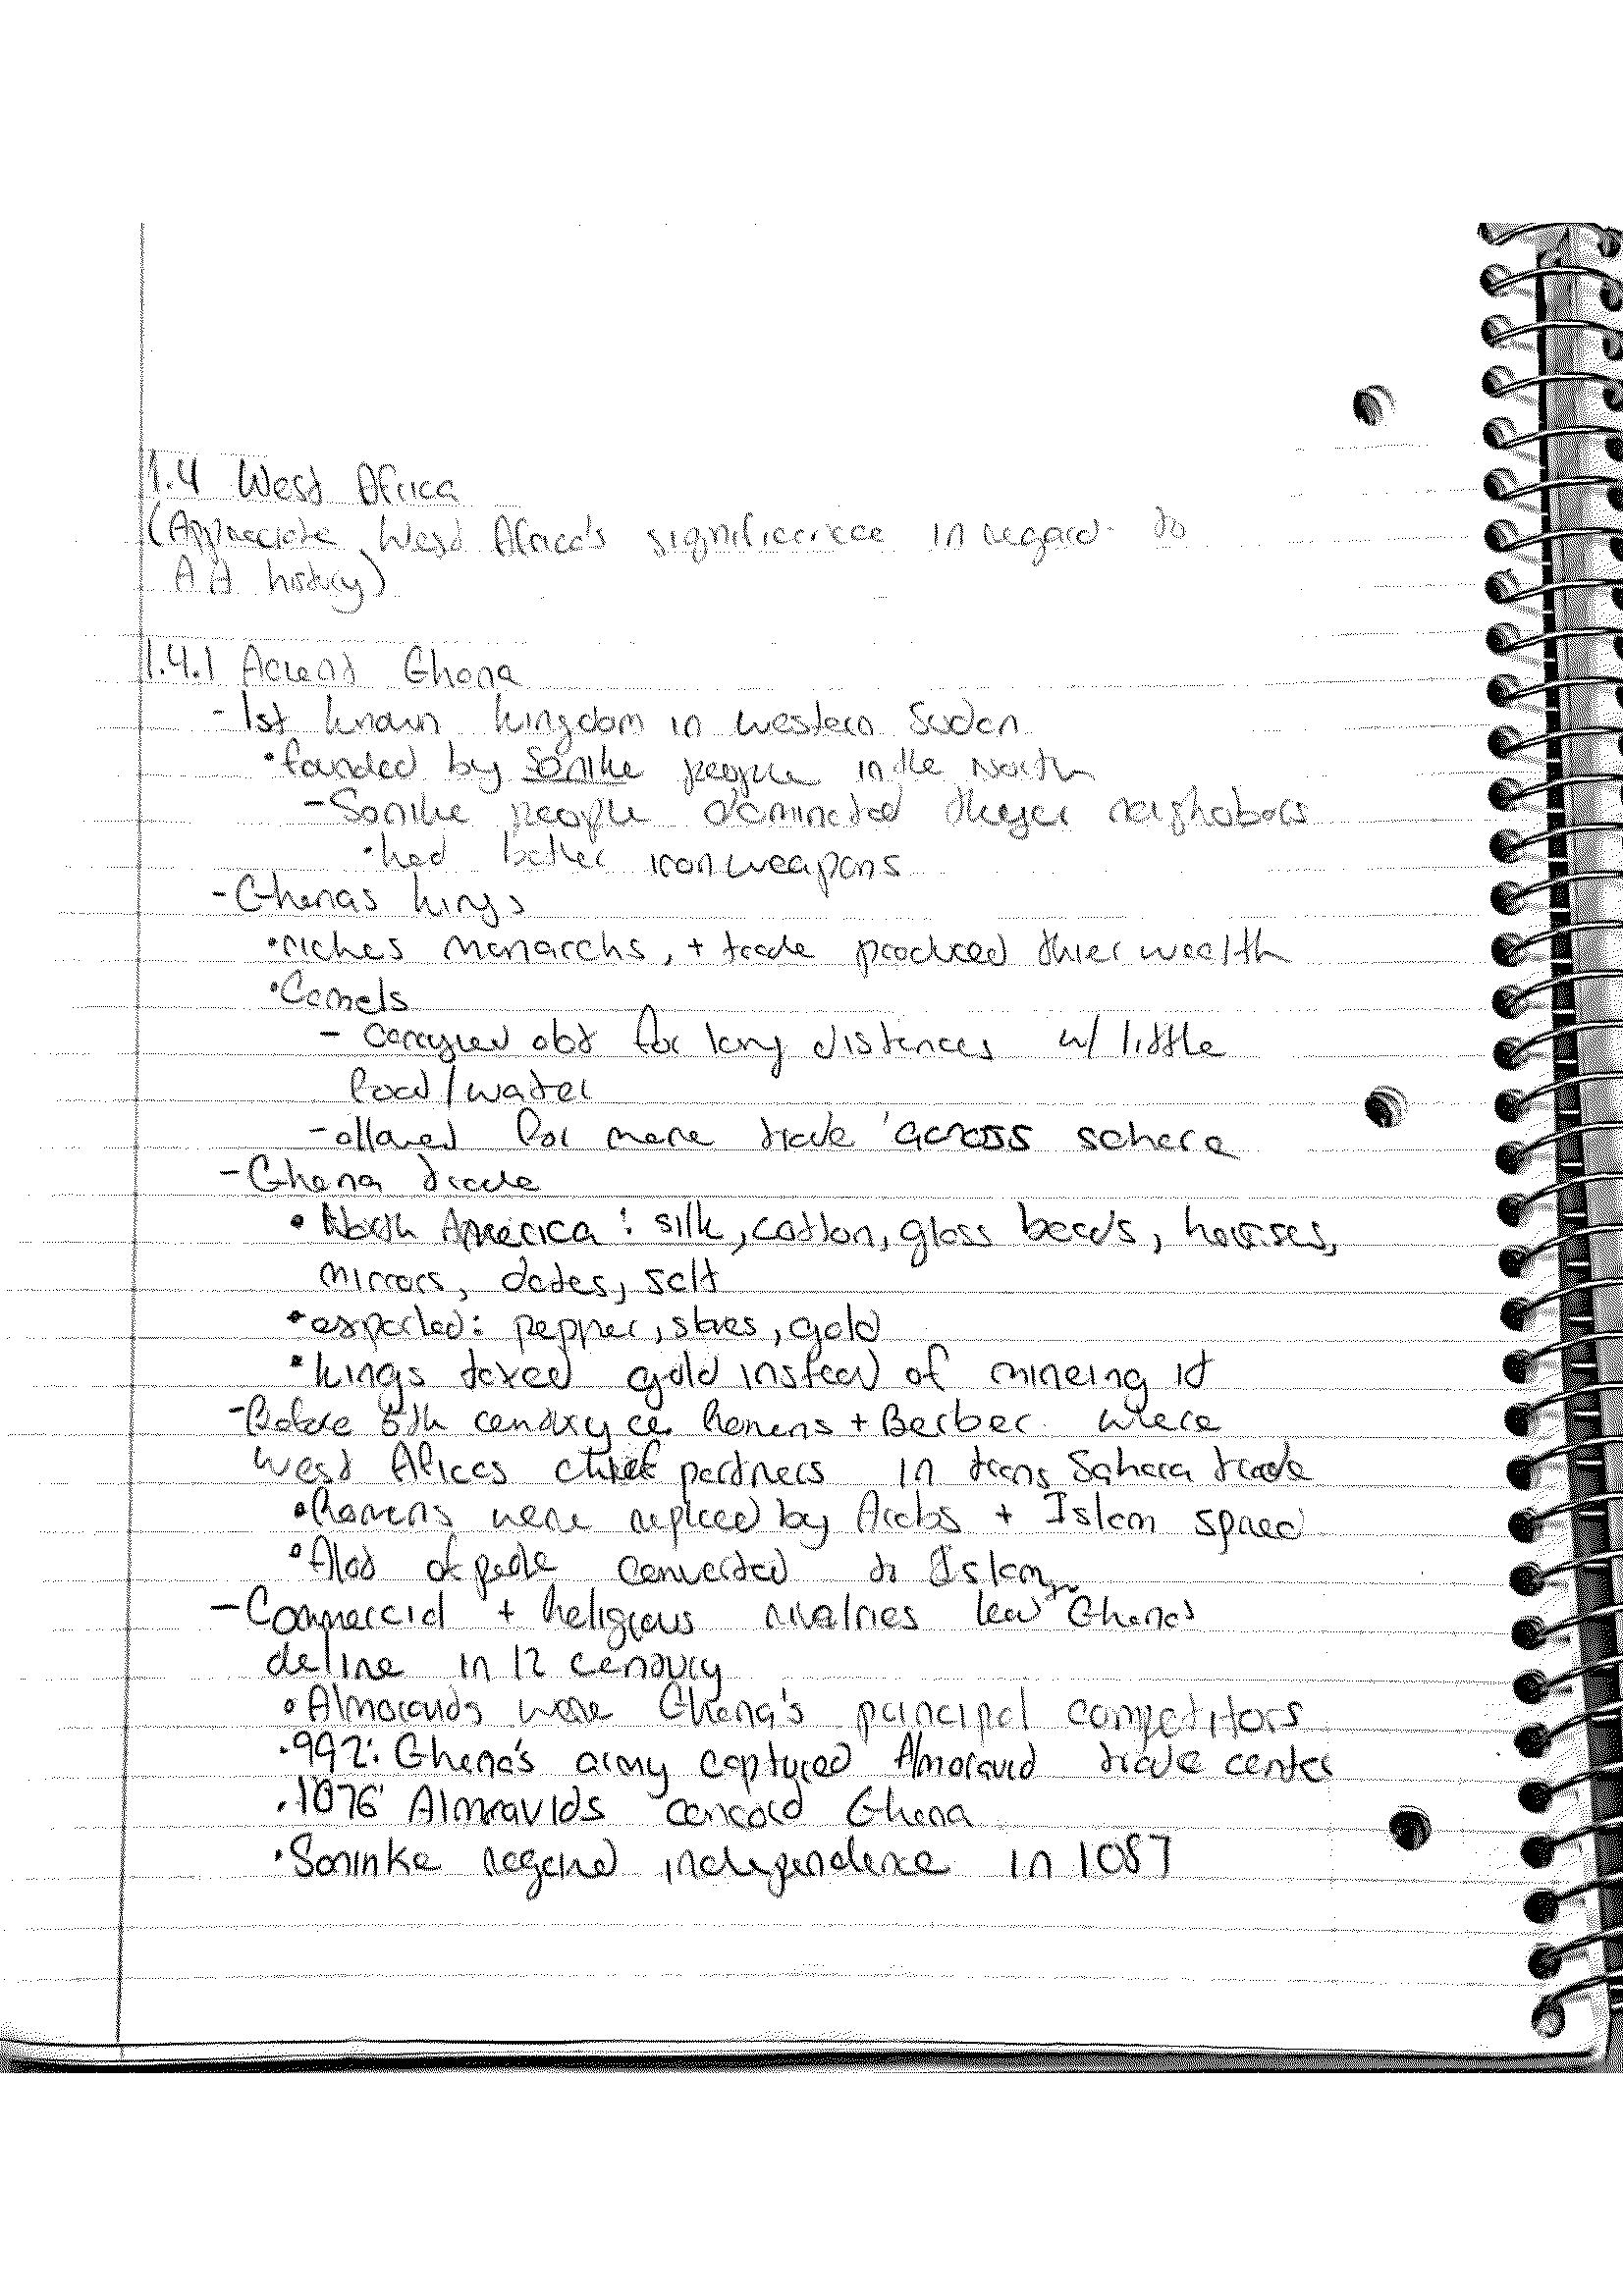 1.4 West Africa
(Appreciate West Africa's significance in regard to
A A history)
1.4.1 Acient Ghana
- 1st known kingdom in western Sudan
• founded by Sonike people in the North
- Sonike people dominated neighobors
• had better iron weapons
- Ghanas kings
• riches monarchs, + trade produced thier wealth
• Camels
- carryied alot for long distances w/ little
food/water
- allowed for more trade across sahara
- Ghana trade
• North America: silk, cotton, glass beads, horses,
mirrors, dates, salt
• exported: pepper, slaves, gold
• kings taxed gold instead of mineing it
- Before 5th century ce. Romens + Berber were
West Africas chief partners in trans Sahara trade
• Romens were replced by Arabs + Islam spread
• Alot of peole converted to Islam
- Commercial + Religious rivalries lead Ghana's
deline in 12 century
• Almoravids were Ghana's principal competitors
• 992: Ghana's army captured Almoravid trade center
• 1076' Almravids Ghana
• Soninke regained independence in 1087